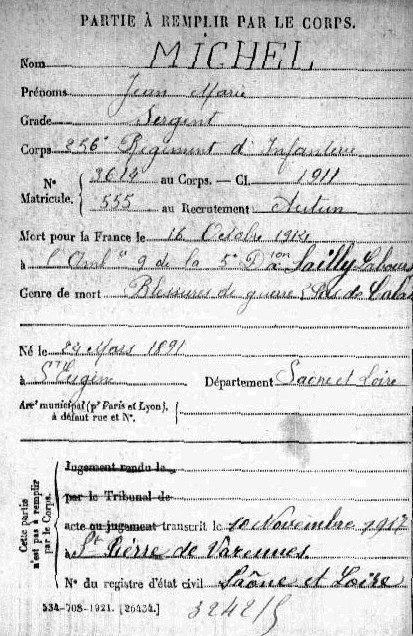 PARTIE À REMPLIR PAR LE CORPS.
Nom MICHEL
Prénoms Jean Marie
Grade Sergent
Corps 256e Régiment d'Infanterie
N° Matricule. 2614 au Corps. — Cl. 1911
555 au Recrutement Autun
Mort pour la France le 16 Octobre 1914
à l'Amb 9 de la 5e Dion Sailly Labourse
Genre de mort Blessures de guerre Pas de Calais
Né le 24 Mars 1891
à St Eugène Département Saône et Loire
Arrt municipal (pr Paris et Lyon), à défaut rue et N°.
Cette partie n'est pas à remplir par le Corps.
Jugement rendu le
par le Tribunal de
acte ou jugement transcrit le 10 Novembre 1917
à St Pierre de Varennes
N° du registre d'état civil Saône et Loire
534-708-1921. [26434.] 32421/5